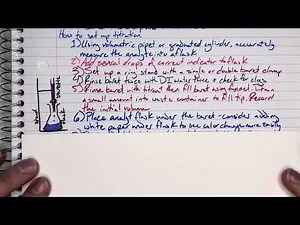 How to set up titration
1) Using volumetric pipet or graduated cylinder, accurately
measure the analyte into a flask
2) Add several drops of correct indicator to flask
3) Set up a ring stand with a single or double buret clamp
4) Rinse buret twice with DI water twice & check for
5) Rinse buret with titrant then fill buret using funnel. Drain
a small amount into waste container to fill tip. Record
the initial volume
6) Place analyte flask under the buret - consider adding
white paper under flask to see color change more easily